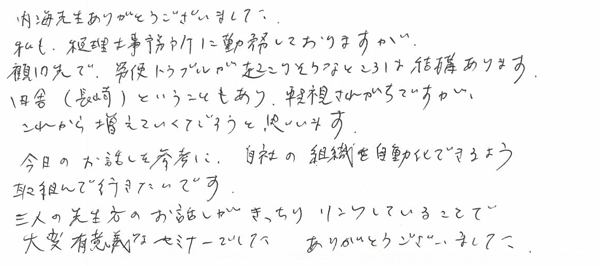 内海先生ありがとうございました。
私も、経理士事務所に勤務しておりますが、
顧問先で、労使トラブルが起こりそうなところは結構あります。
田舎（長崎）ということもあり、軽視されがちですが、
これから増えていくだろうと思います。
今日のお話しを参考に、自社の組織を自動化できるよう
取組んで行きたいです。
三人の先生方のお話しがきっちりリンクしていることで
大変有意義なセミナーでした　ありがとうございました。